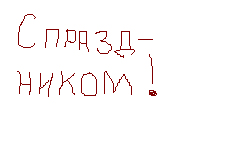 С празд-
ником!